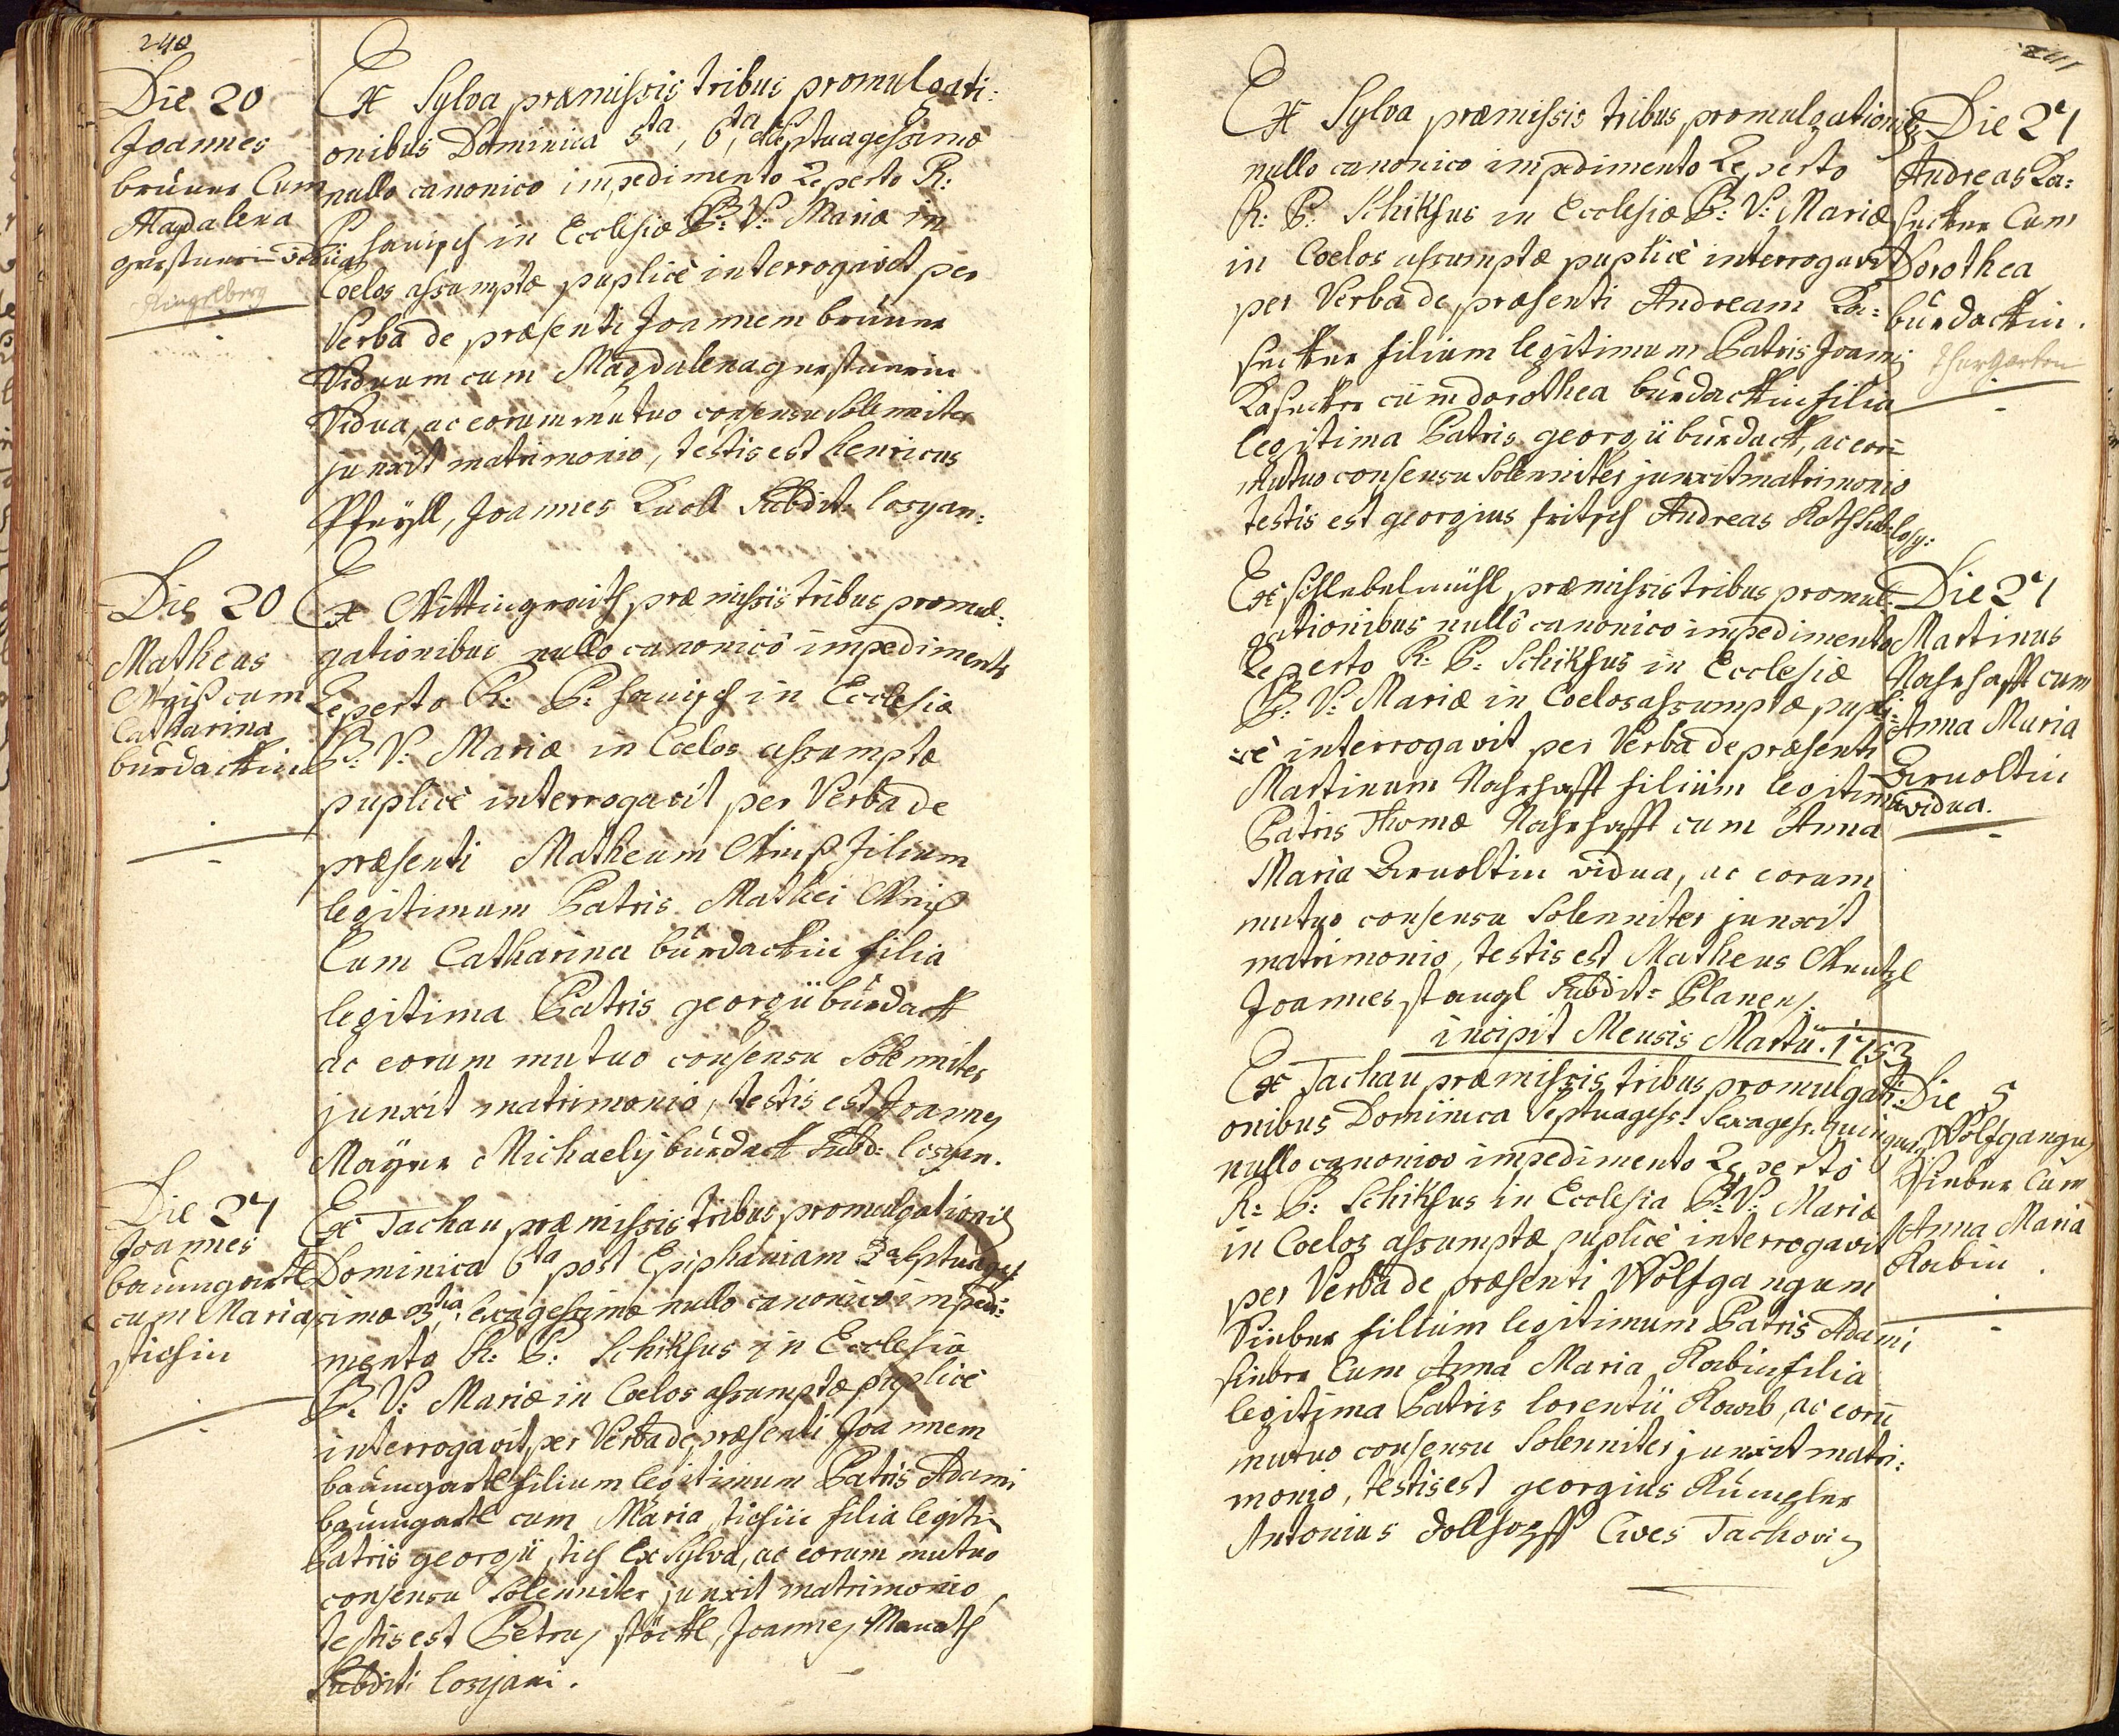 240
Die 20
Joannes
brunner Cum
Magdalena
vidua
Ringelberg
Ex Sylva præmissis tribus promulgati:
onibus Dominica 5ta, 6ta, et Septuagessimæ
nullo canonico impedimento Reperto R:
P hanisch in Ecclesiæ B: V: Mariæ in
Coelos assumptæ puplicè interrogavit per
Verba de præsenti Joannem brunner
Viduum cum Magdalena
Vidua, ac eorum mutuo consensu Solenniter
junxit matrimonio, testis est henricus
Joannes Subdit: losyan:
Die 20
Matheus
cum
Catharina
burdackin
Ex præmissis tribus promul:
gationibus nullo canonico impedimento
Reperto R: P: hanisch in Ecclesiæ
B: V: Mariæ in Coelos assumptæ
puplicè interrogavit per Verba de
præsenti Matheum filium
legitimum Patris Mathei
Cum Catharina burdackin filia
legitima Patris georgii burdack
ac eorum mutuo consensu Solenniter
junxit matrimonio, testis est Joannes
Mayer Michaelis burdack Subd: losyan.
Die 27
Joannes
baumgartl
cum Maria
stichin
Ex Tachau præmissis tribus promulgationib
Dominica 6ta post Epiphaniam 2a Septuages
simæ 3tia Sexagessimæ nullo canonico impedi:
mento R: P: Schiksus in Ecclesia
B: V: Mariæ in Coelos assumptæ puplicè
interrogavit per Verba de præsenti Joannem
baumgartl filium legitimum Patris Adami
baumgartl cum Maria stichin filia legiti
Patris georgii stich Ex Sylva, ac eorum mutuo
consensu Solenniter junxit matrimonio
testis est Petrus stöckl, Joannes
Subditi losyani.
241
Ex Sylva præmissis tribus promulgationib
nullo canonico impedimento Reperto
R: P: Schiksus in Ecclesiæ B: V: Mariæ
in Coelos assumptæ puplicè interrogavit
per Verba de præsenti Andream
filium legitimum Patris Joannis
cum dorothea burdackin filia
legitima Patris georgii burdack, ac eorū
mutuo consensu Solenniter junxit matrimonio
testis est georgius fritsch Andreas Roth Sub: losy:
Die 27
Andreas
Cum
Dorothea
burdackin.
thiergarten
Ex præmissis tribus promul:
gationibus nullò canonico impedimento
Reperto R: P: Schiksus in Ecclesiæ
B: V: Mariæ in Coelos assumptæ pupli:
cè interrogavit per Verba de præsenti
Martinum Nahrhafft filium legitimu
Patris Thomæ Nahrhafft cum Anna
Maria vidua, ac eorum
mutuo consensu Solenniter junxit
matrimonio, testis est Matheus
Joannes stangl Subdit: Planens:
Die 27
Martinus
Nahrhafft cum
Anna Maria
vidua.
incipit Mensis Martii. 1753
Ex Tachau præmissis tribus promulgati:
onibus Dominica Septuagess: Sexagess: quinquag
nullo canonico impedimento Reperto
R: P: Schiksus in Ecclesia B: V: Mariæ
in Coelos assumptæ puplicè interrogavit
per Verba de præsenti Wolfgangum
Sieber filium legitimum Patris Adami
sieber Cum Anna Maria Rabin filia
legitima Patris lorentii Raab, ac eorū
mutuo consensu Solenniter junxit matri:
monio, testis est georgius
Antonius dollhopff Cives Tachovi
Die 5
Wolfgangus
Sieber Cum
Anna Maria
Rabin